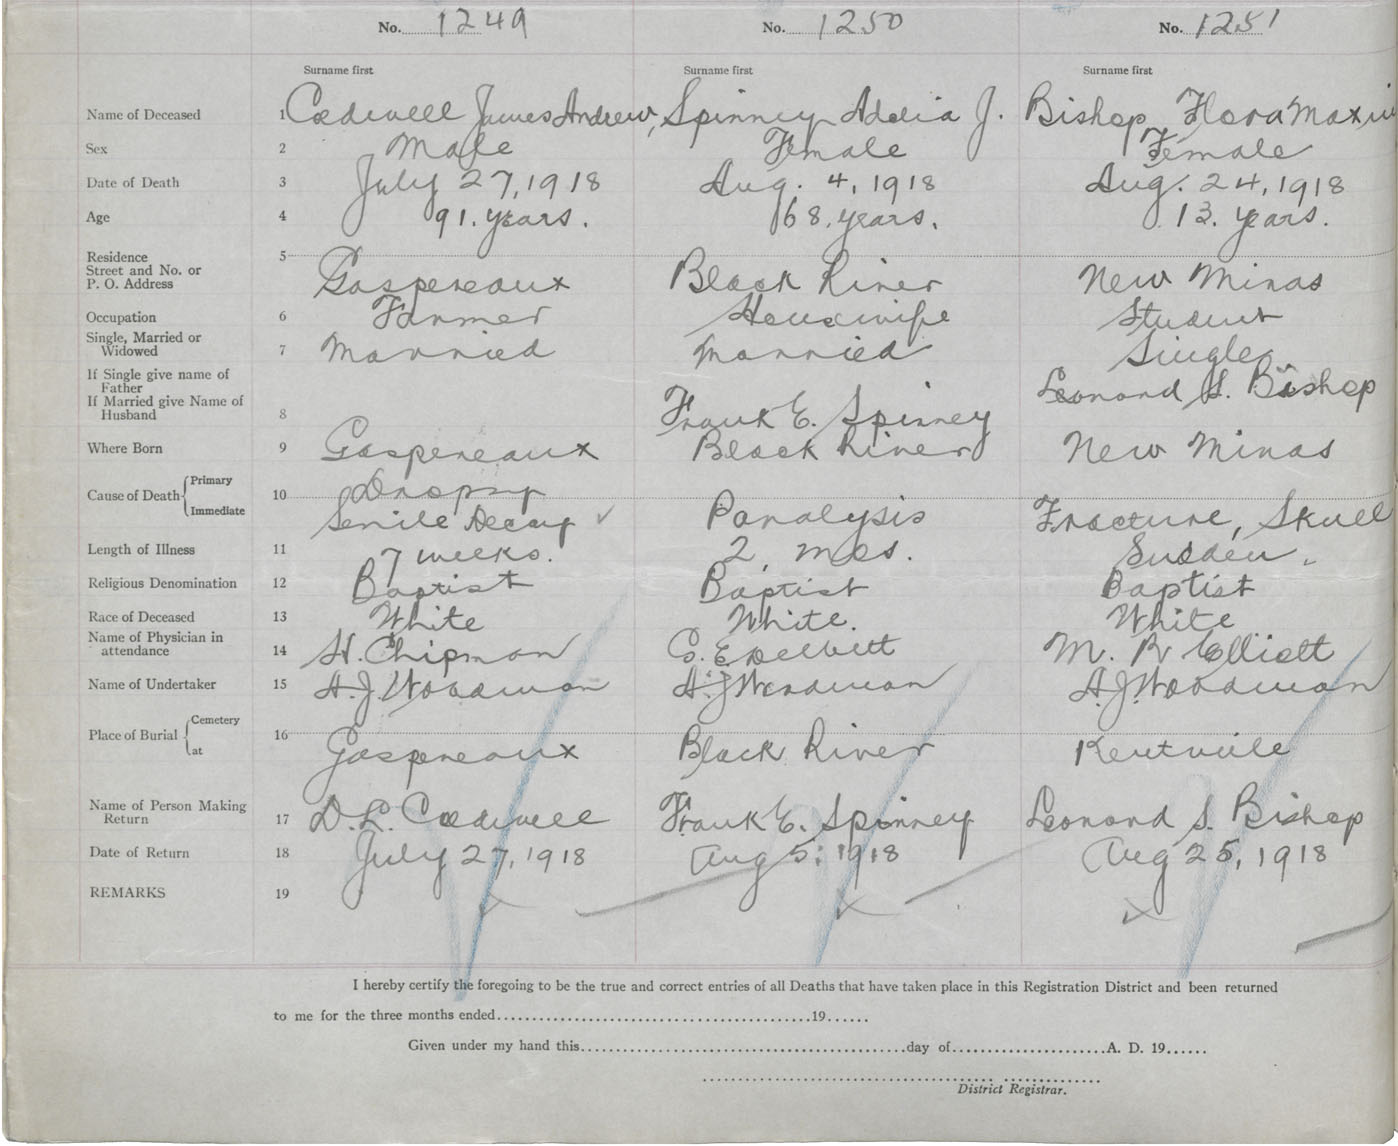 No. 1249 No. 1250 No. 1251
Surname first Surname first Surname first
Name of Deceased 1 Coldwell James Andrew, Spinney Adelia J. Bishop Flora
Sex 2 Male Female Female
Date of Death 3 July 27, 1918 Aug. 4, 1918 Aug. 24, 1918
Age 4 91. years. 68. years. 13. years.
Residence
Street and No. or
P. O. Address 5 Gaspereaux Black River New Minas
Occupation 6 Farmer Housewife Student
Single, Married or
Widowed 7 Married Married Single
If Single give name of
Father Leonard S. Bishop
If Married give Name of
Husband 8 Frank E. Spinney
Where Born 9 Gaspereaux Black River New Minas
Cause of Death Primary 10 Dropsy
Immediate Senile Decay ✓ Paralysis Fracture, Skull
Length of Illness 11 7 weeks. 2 mos. Sudden.
Religious Denomination 12 Baptist Baptist Baptist
Race of Deceased 13 White White. White
Name of Physician in
attendance 14 H. Chipman G. E. DeWitt M. R. Elliott
Name of Undertaker 15 A. J. Woodman A. J. Woodman A. J. Woodman
Place of Burial Cemetery 16
at Gaspereaux Black River Kentville
Name of Person Making
Return 17 D. L. Coldwell Frank E. Spinney Leonard S. Bishop
Date of Return 18 July 27, 1918 Aug 5, 1918 Aug 25, 1918
REMARKS 19
I hereby certify the foregoing to be the true and correct entries of all Deaths that have taken place in this Registration District and been returned
to me for the three months ended..........19......
Given under my hand this..........day of..........A. D. 19......
District Registrar.